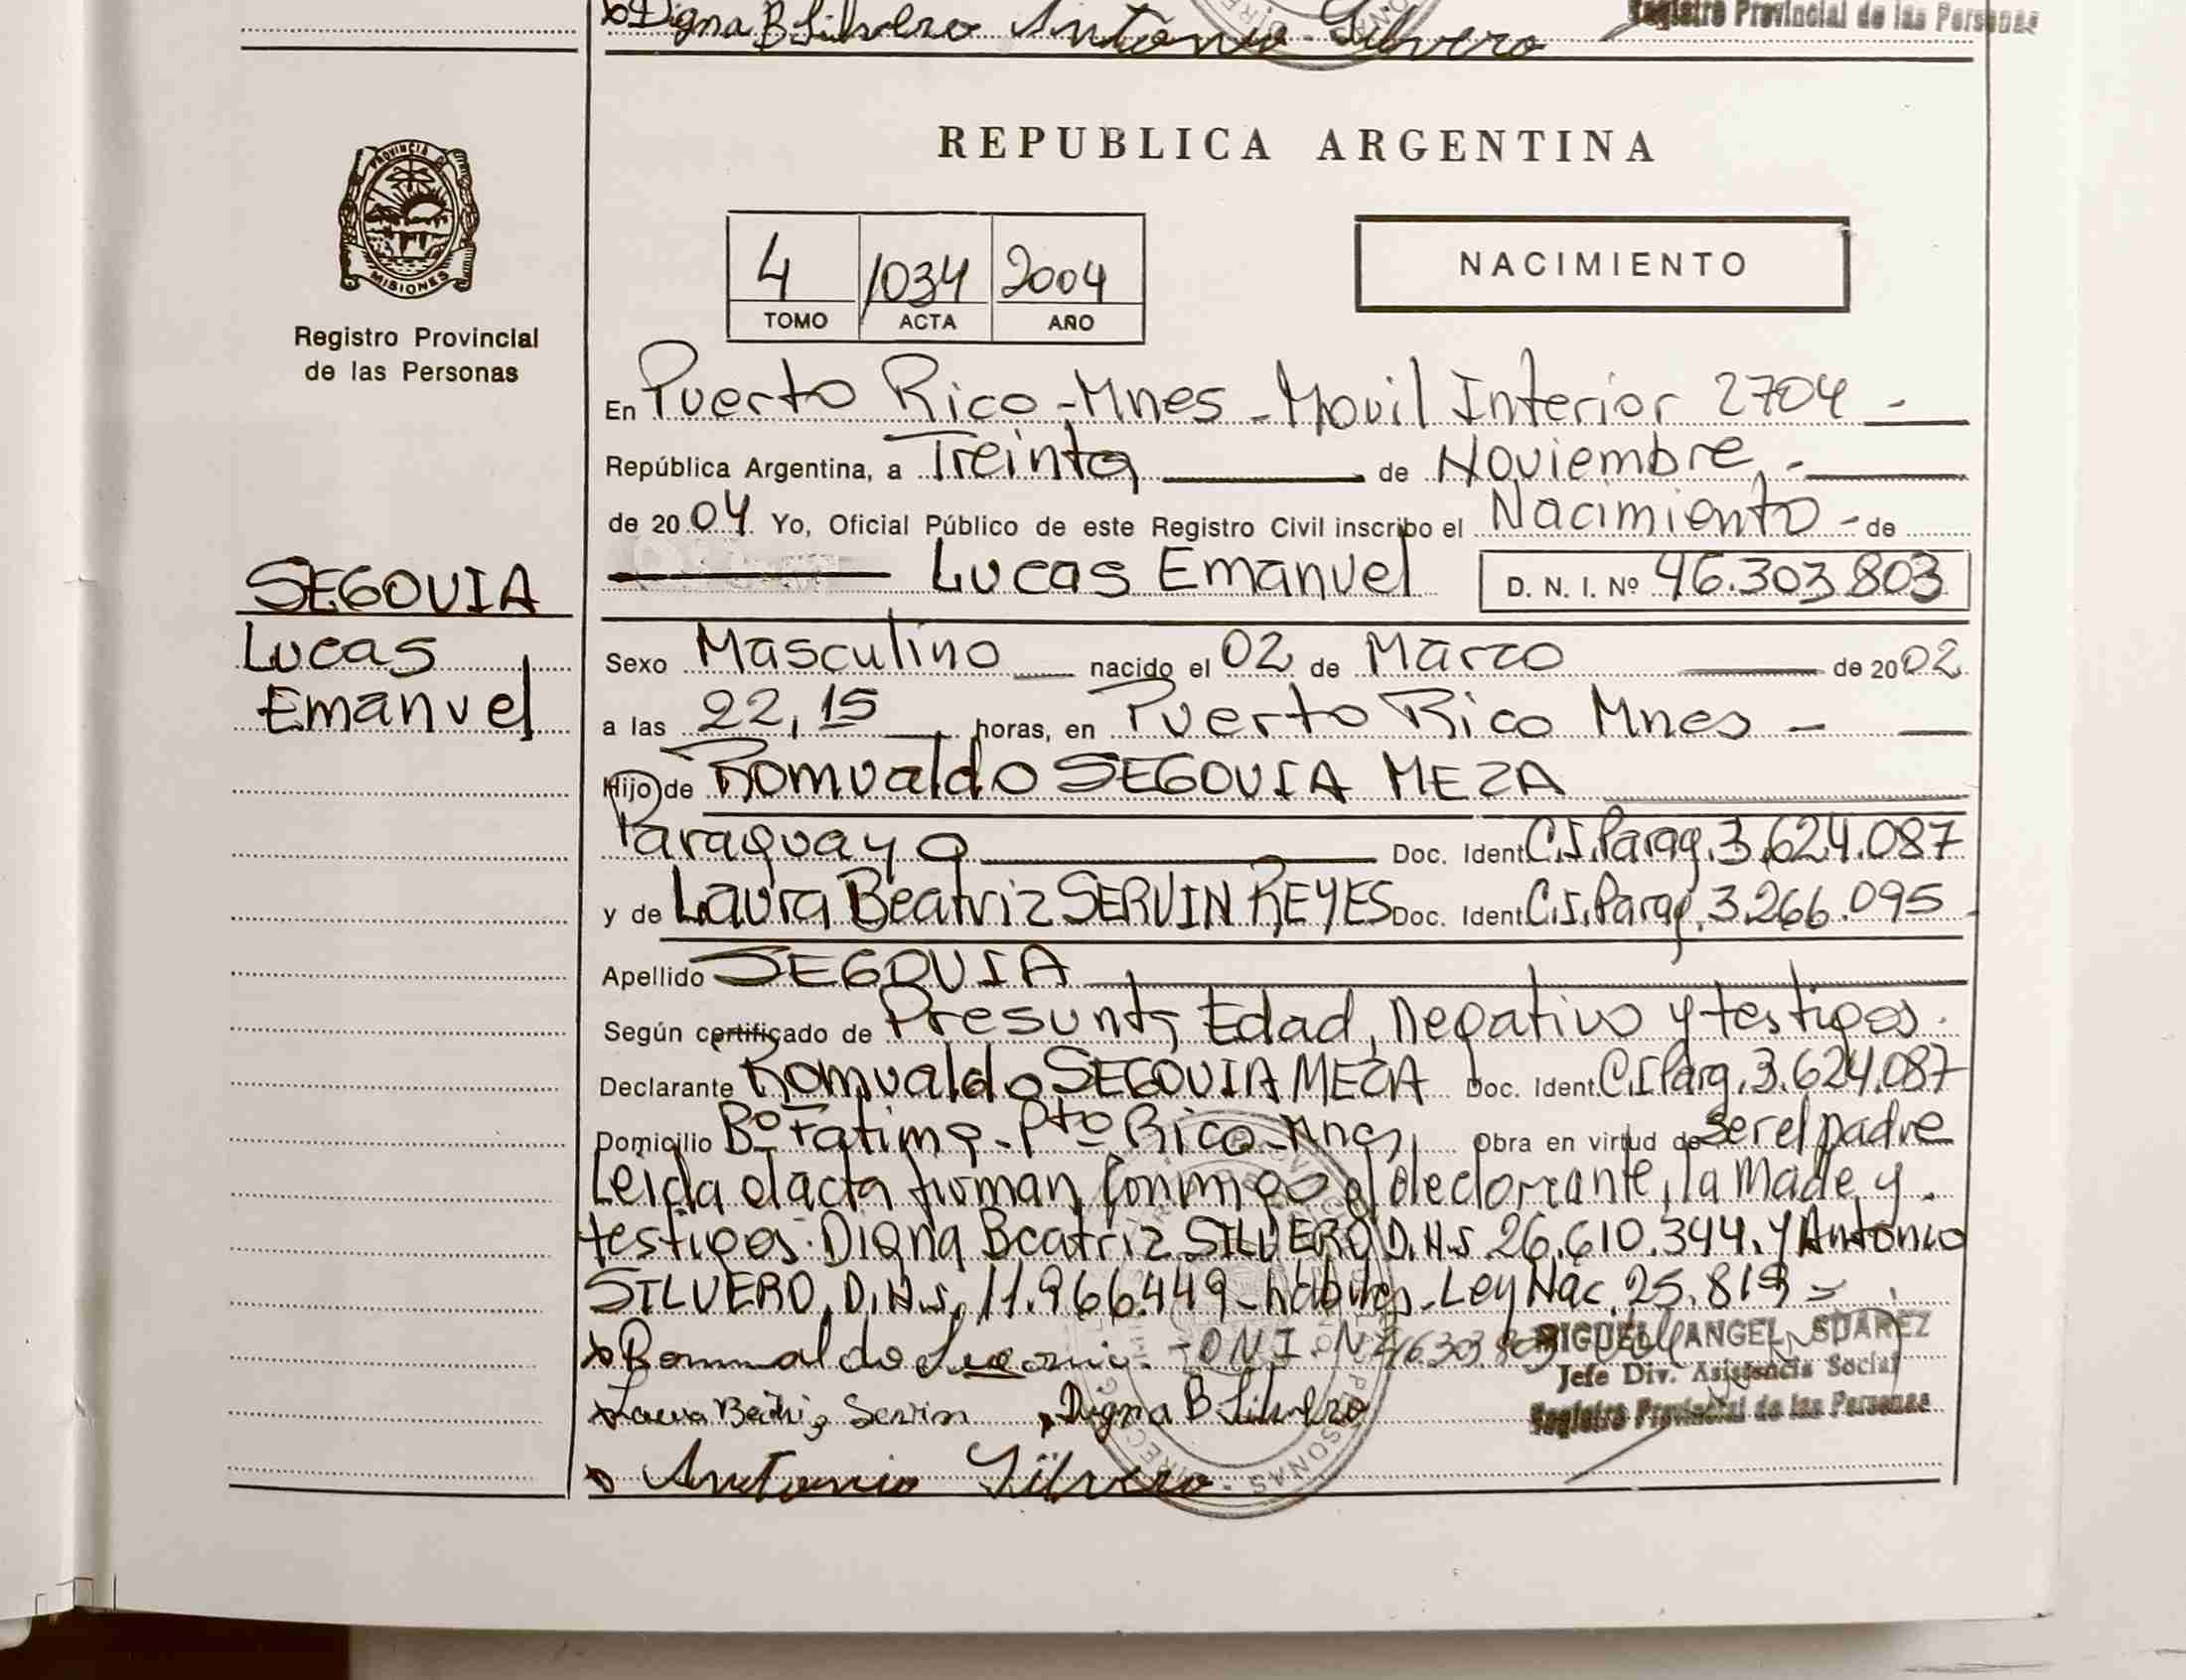 Digna B Silvero Antonio Silvero
Registro Provincial de las Personas
PROVINCIA DE
MISIONES
Registro Provincial
de las Personas
SEGOVIA
Lucas
Emanuel
REPUBLICA ARGENTINA
4 1034 2004
TOMO ACTA AÑO
NACIMIENTO
En Puerto Rico - Mnes - Movil Interior 2704 -
República Argentina, a Treinta de Noviembre -
de 2004 Yo, Oficial Público de este Registro Civil inscribo el Nacimiento - de
Lucas Emanuel D. N. I. Nº 46.303.803
Sexo Masculino nacido el 02 de Marzo de 2002
a las 22,15 horas, en Puerto Rico Mnes -
Hijo de Romualdo SEGOVIA MEZA
Paraguayo Doc. Ident. C.I. Parag. 3.624.087
y de Laura Beatriz SERVIN REYES Doc. Ident. C.I. Parag. 3.266.095
Apellido SEGOVIA
Según certificado de Presunta Edad, Negativo y testigos.
Declarante Romualdo SEGOVIA MEZA Doc. Ident. C.I Parg. 3.624.087
Domicilio Bº Fatima - Pto Rico - Mnes, Obra en virtud de ser el padre
Leida el acta firman conmigo el declarante, la Madre y
testigos: Digna Beatriz SILVERO D.N.I. 26.610.344. Y Antonio
SILVERO. D.N.I. 11.966.449 - habiles - Ley Nac. 25.819 =
Romualdo Segovia. - DNI. Nº 46303803
MIGUEL ANGEL SUAREZ
Jefe Div. Asistencia Social
Registro Provincial de las Personas
Laura Beatriz Servin Digna B Silvero
Antonio Silvero